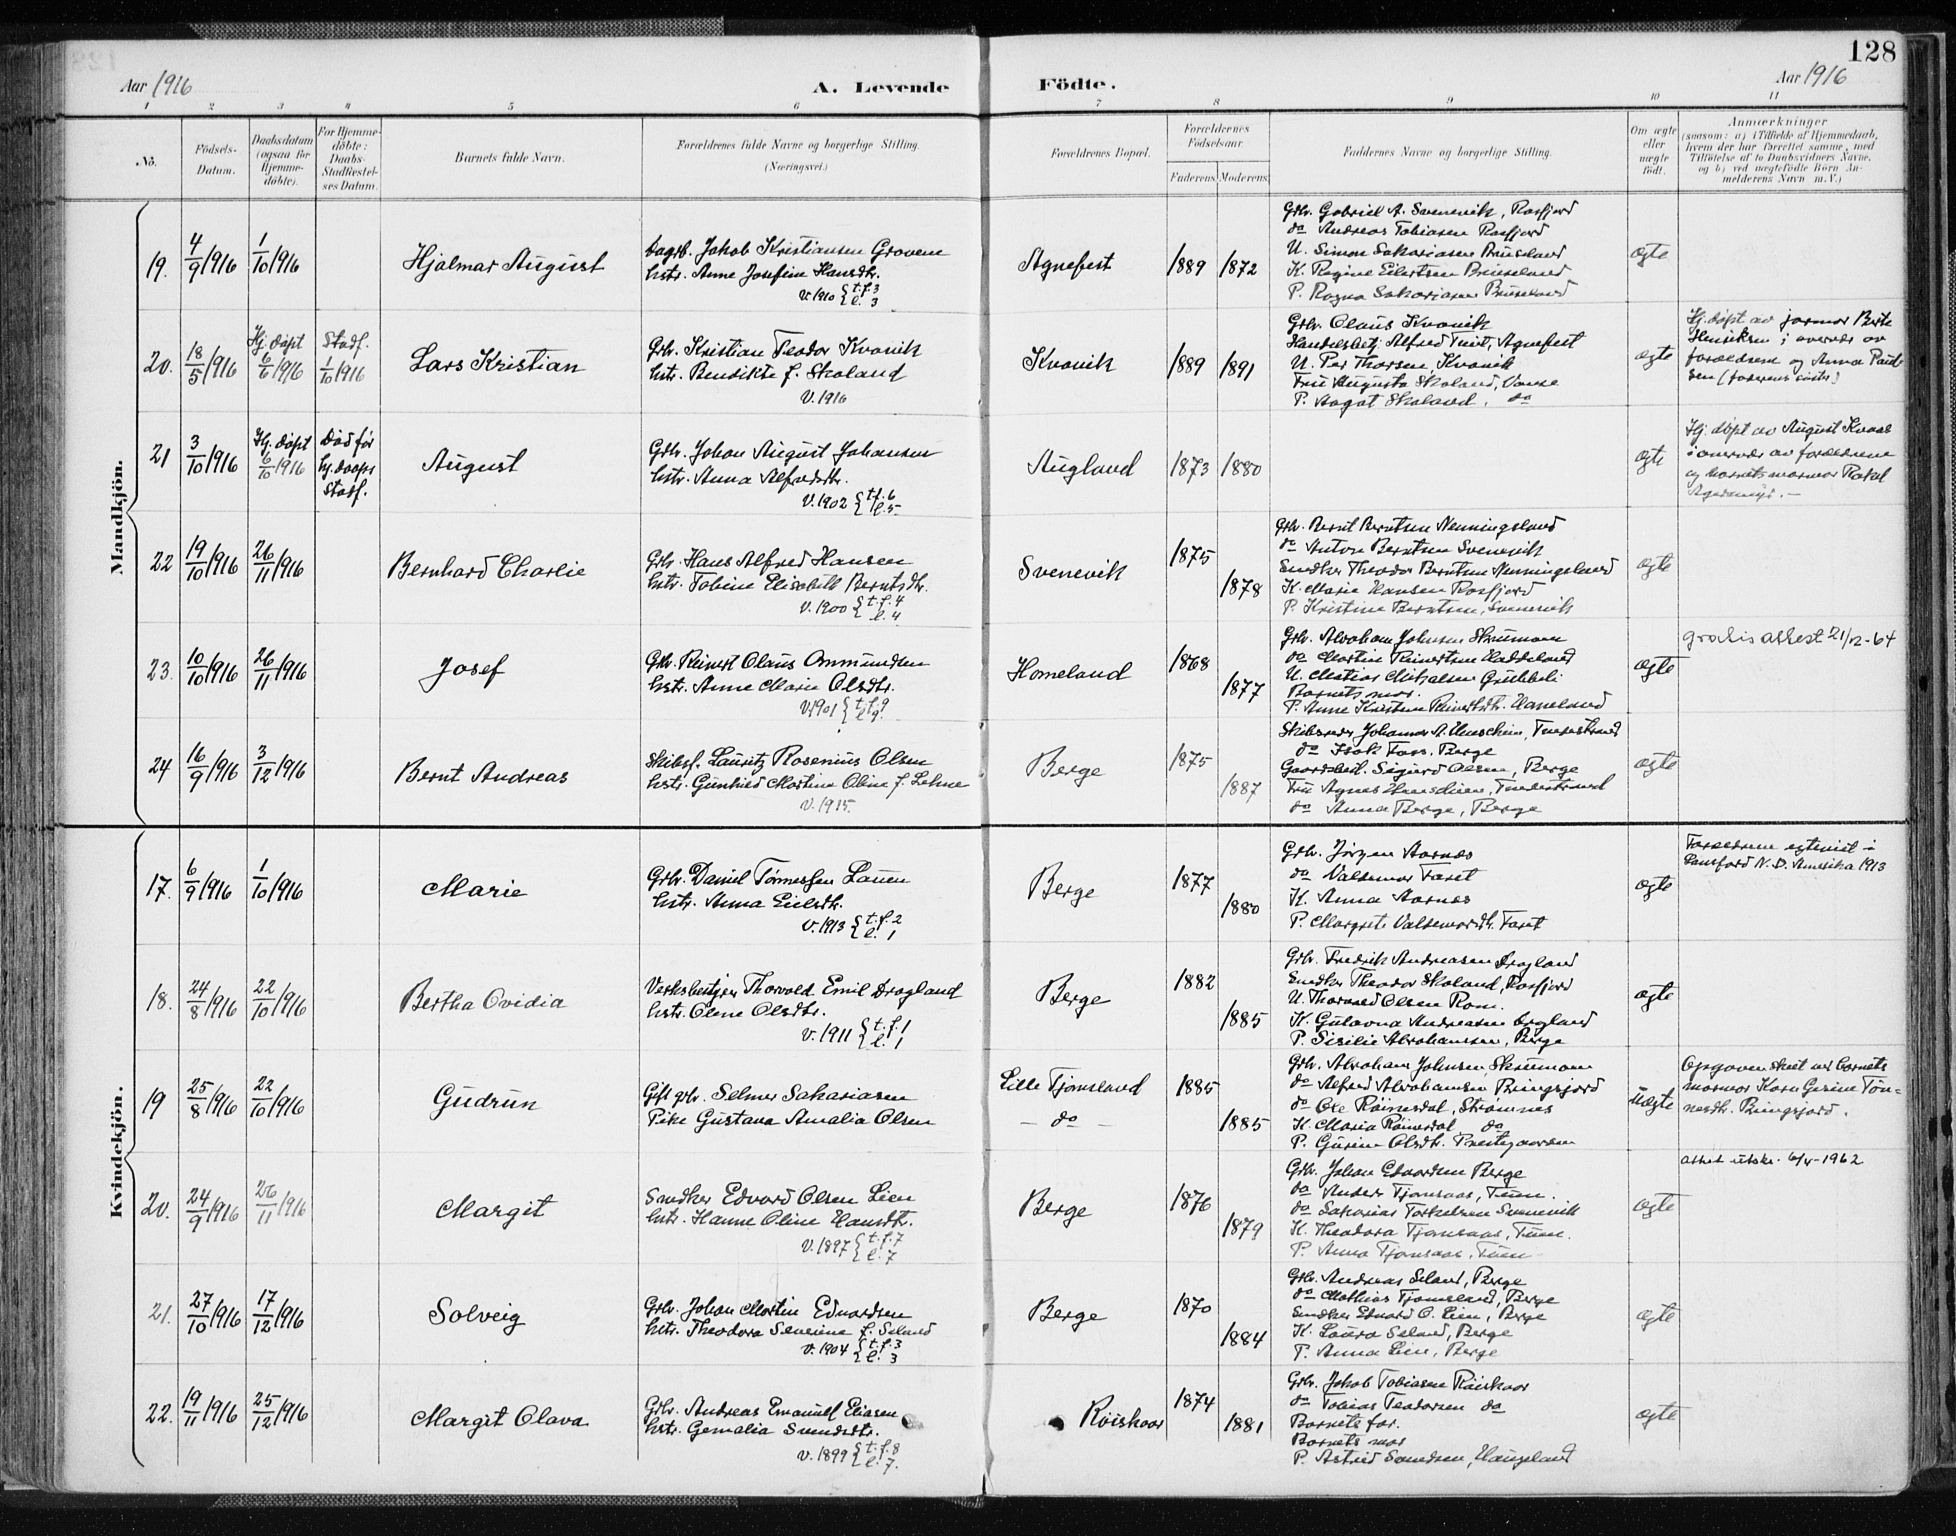 128
Aar 1916
A. Levende Födte.
Aar 1916
1 2 3 4 5 6 7 8 9 10 11
No.
Födsels-Datum.
Daabsdatum (ogsaa for Hjemme-döbte).
For Hjemme-döbte: Daabs-Stadfæstel-ses Datum.
Barnets fulde Navn.
Forældrenes fulde Navne og borgerlige Stilling.
(Næringsvei.)
Forældrenes Bopæl.
Forældrenes Födselsaar.
Faderens. Moderens.
Faddernes Navne og borgerlige Stilling.
Om ægte eller uægte födt.
Anmærkninger
(saasom: a) i Tilfælde af Hjemmedaab, hvem der har forrettet samme, med Tilföielse af to Daabsvidners Navne, og b) ved uægtefödte Börn An-melderens Navn m. V.)
Mandkjön.
19. 4/9 1916 1/10 1916 Hjalmar August
Dagarb. Jakob Kristiansen Grovene
hstr. Anne Josefine Hansdtr.
V. 1910 { t.f. 3
l. 3
Agnefest 1889 1872
Grbr. Gabriel A. Svenevik, Rosfjord
do Andreas Tobiasen Rosfjord
U. Simon Sakariasen Bruseland
K. Regine Eilertsen Bruseland
P. Ragna Sakariasen Bruseland
egte
20. 18/5 1916 Hj. døpt 6/6 1916 Stadf. 1/10 1916 Lars Kristian
Grb. Kristian Teodor Kvavik
hstr. Bendikte f. Skoland
V. 1916
Kvavik 1889 1891
Grbr. Olaus Kvavik
Handelsbetj. Alfred Tveit, Agnefest
U. Per Thorsen Kvavik
Fru Augusta Skoland, Vanse
P. Aagot Skoland, do
egte
Hj. døpt av farmor Berte
Henriksen i overvær av
forældrene og Anna Paul-
sen (faderens søster)
21 3/10 1916 Hj. døpt 6/10 1916 Død før hj. daaps stadf. August
Grb. Johan August Johansen
hstr. Anna Alfredsdtr.
V. 1902 { t.f. 6
l. 5
Augland 1873 1880
egte
Hj. døpt av August Kvaas
i overvær av forældrene
og barnets mormor Rakel
22 19/10 1916 26/11 1916 Bernhard Charlie
Grb. Hans Alfred Hansen
hstr. Tobine Elisabeth Berntsdtr.
V. 1900 { t.f. 4
l. 4
Svenevik 1875 1878
Grb. Bernt Berntsen Nenningsland
do Anton Berntsen Svenevik
Snedker Theodor Berntsen Nenningsland
K. Marie Hansen Rosfjord
P. Kristine Berntsen, Svenevik
egte
23. 10/10 1916 26/11 1916 Josef
Grb. Reinert Olaus Ommundsen
hstr. Anne Marie Olsdtr.
V. 1901 { t.f. 9
l. 9.
Homeland 1868 1877
Grb. Abraham Johnsen Skrumoen
do Martin Reinertsen Haddeland
U. Matias Mikalsen
Barnets mor.
P. Anne Kristine Reinertsdtr. Homeland
egte
gratis attest 21/12-64
24 16/9 1916 3/12 1916 Bernt Andreas
Skibsf. Lauritz Rosenius Olsen
hstr. Gunhild Martine Oline f. Lehne
V. 1915.
Berge 1875 1887
do Isak Tom. Berge
Gaardsbest. Sigurd Olsen, Berge
do Anna Berge, Berge
egte
Kvindekjön.
17. 6/9 1916 1/10 1916 Marie
Grb. Daniel Tønnessen Lauen
hstr. Anna Eielsdtr.
V. 1913 { t.f. 2
l. 1
Berge 1877 1880
Grb. Jørgen Aarnes
do Valdemar Faret
K. Anna Aarnes
P. Margrete Valdemarsdtr. Faret
egte
Forældrene egteviet i
Lansford N.D. Amerika 1913
18. 24/8 1916 22/10 1916 Bertha Ovidia
Verksbestyrer Thorvald Emil Drogland
hstr. Oline Olsdtr.
V. 1911 { t.f. 1
l. 1
Berge 1882 1885
Grb. Fredrik Andreasen Drogland
Snedker Theodor Skoland, Rosfjord
U. Thorvald Olsen Rom.
K. Gulovna Andreasen Drogland
P. Sisilie Abrahamsen, Berge
egte
19 25/8 1916 22/10 1916 Gudrun
Gift grb. Selmer Sakariasen
Pike Gustava Amalia Olsen
Lille Tjomsland
– do –
1885 1885
Grb. Abraham Johnsen, Skrumoen
do Alfred Abrahamsen Ringsjord
do Ole Røinesdal, Strømnes
K. Maria Røinesdal do
P. Gurine Olsdtr. Prestegaarden
Uegte
Opgaven sket ved barnets
mormor Karen Gesine Tøn-
nesdtr. Ringsjord.
20. 24/9 1916 26/11 1916 Margit
Snedker Edvard Olsen Lien
hstr. Hanne Oline Hansdtr.
V. 1897 { t.f. 7
l. 7
Berge 1876 1879
Grb. Johan Edvardsen Berge
do Anders Tjomsaas, Tuen.
do Sakarias Torkelsen Svenevik
K. Theodora Tjomsaas, Tuen.
P. Anna Tjomsaas, Tuen
egte
attest utskr. 6/4-1962
21. 27/10 1916 17/12 1916 Solveig
Grb. Johan Martin Edvardsen
hstr. Theodora Severine f. Seland
V. 1904 { t.f. 3
l. 3
Berge 1870 1884
Grb. Andreas Seland, Berge
do Mathias Tjomsland, Berge
Snedker Edvard O. Lien, Berge
K. Laura Seland, Berge
P. Anna Lien, Berge
egte
22. 19/11 1916 25/12 1916 Margit Olava
Grb. Andreas Emanuel Eliasen
hstr. Gemalia Svendsdtr.
V. 1899 { t.f. 8
l. 7.
Røiskaar 1874 1881
Grb. Jakob Tobiasen Røiskaar
do Tobias Teodorsen do
Barnets far.
Barnets mor
P. Astrid Svendsen, Haugeland
egte